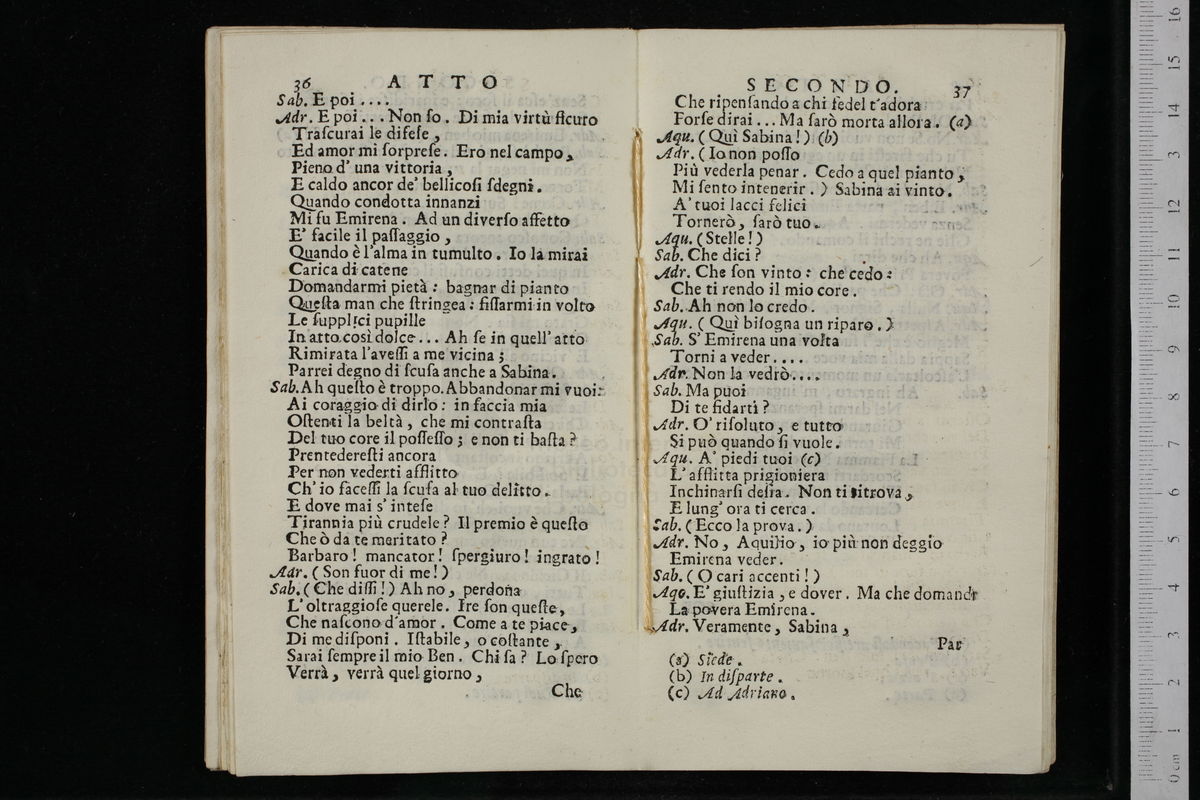 36 ATTO
Sab. E poi ....
Adr. E poi ... Non so. Di mia virtù sicuro
Trascurai le difese,
Ed amor mi sorprese. Ero nel campo,
Pieno d' una vittoria,
E caldo ancor de' bellicosi sdegni.
Quando condotta innanzi
Mi fu Emirena. Ad un diverso affetto
E' facile il passaggio,
Quando è l'alma in tumulto. Io la mirai
Carica di catene
Domandarmi pietà: bagnar di pianto
Questa man che stringea: fissarmi in volto
Le supplici pupille
In atto così dolce ... Ah se in quell' atto
Rimirata l'avessi a me vicina;
Parrei degno di scusa anche a Sabina.
Sab. Ah questo è troppo. Abbandonar mi vuoi:
Ai coraggio di dirlo: in faccia mia
Ostenti la beltà, che mi contrasta
Del tuo core il possesso; e non ti basta?
Prentederesti ancora
Per non vederti afflitto
Ch' io facessi la scusa al tuo delitto.
E dove mai s' intese
Tirannia più crudele? Il premio è questo
Che ò da te meritato?
Barbaro! mancator! spergiuro! ingrato!
Adr. (Son fuor di me!)
Sab. (Che dissi!) Ah no, perdona
L' oltraggiose querele. Ire son queste,
Che nascono d'amor. Come a te piace,
Di me disponi. Istabile, o costante,
Sarai sempre il mio Ben. Chi sa? Lo spero
Verrà, verrà quel giorno,
Che
SECONDO. 37
Che ripensando a chi fedel t'adora
Forse dirai ... Ma sarò morta allora. (a)
Aqu. (Quì Sabina!) (b)
Adr. (Io non posso
Più vederla penar. Cedo a quel pianto,
Mi sento intenerir.) Sabina ai vinto.
A' tuoi lacci felici
Tornerò, sarò tuo.
Aqu. (Stelle!)
Sab. Che dici?
Adr. Che son vinto: che cedo:
Che ti rendo il mio core.
Sab. Ah non lo credo.
Aqu. (Quì bisogna un riparo.)
Sab. S' Emirena una volta
Torni a veder ....
Adr. Non la vedrò....
Sab. Ma puoi
Di te fidarti?
Adr. O' risoluto, e tutto
Si può quando si vuole.
Aqu. A' piedi tuoi (c)
L' afflitta prigioniera
Inchinarsi desia. Non ti ritrova,
E lung' ora ti cerca.
Sab. (Ecco la prova.)
Adr. No, Aquilio, io più non deggio
Emirena veder.
Sab. (O cari accenti!)
Aqo. E' giustizia, e dover. Ma che domandi
La povera Emirena.
Adr. Veramente, Sabina,
Par
(a) Siede.
(b) In disparte.
(c) Ad Adriano.